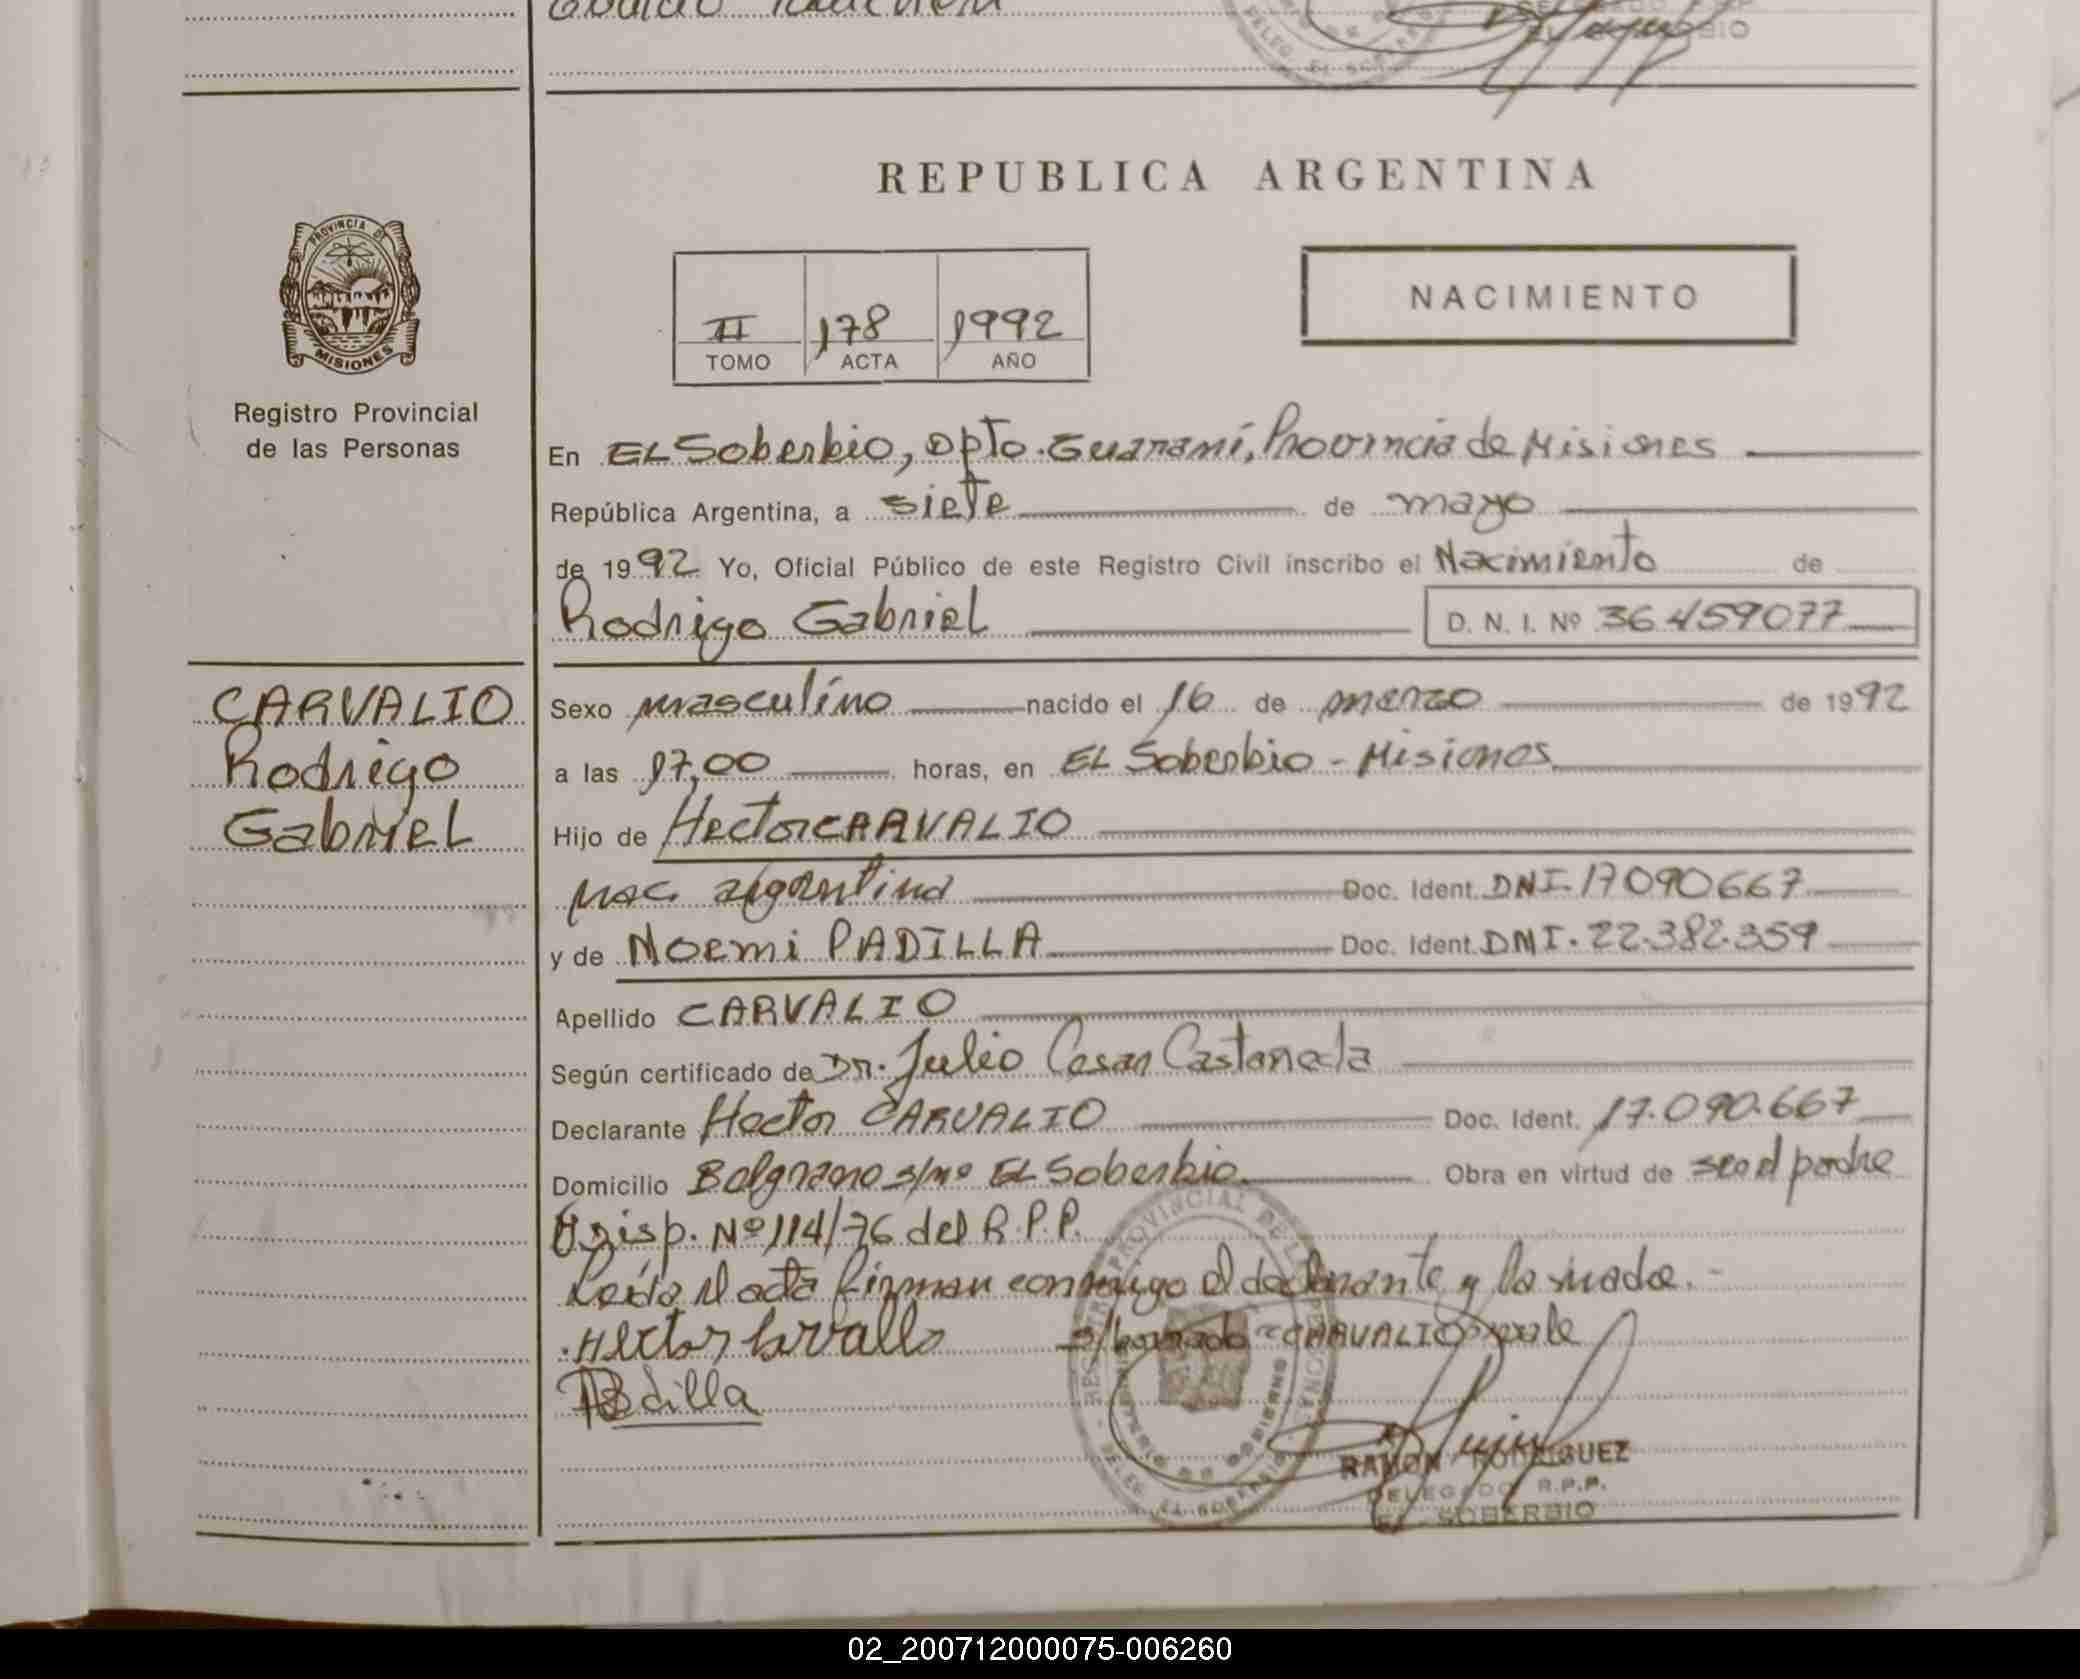 REPUBLICA ARGENTINA
PROVINCIA DE
MISIONES
Registro Provincial
de las Personas
II 178 1992
TOMO ACTA AÑO
NACIMIENTO
En EL Soberbio, Dpto. Guaraní, Provincia de Misiones
República Argentina, a siete de mayo
de 1992 Yo, Oficial Público de este Registro Civil inscribo el Nacimiento de
Rodrigo Gabriel D. N. I. Nº 36459077
CARVALIO
Rodrigo
Gabriel
Sexo masculino nacido el 16 de marzo de 1992
a las 17,00 horas, en EL Soberbio - Misiones
Hijo de Hector CARVALIO
nac. argentina Doc. Ident. DNI. 17090667
y de Noemi PADILLA Doc. Ident. DNI. 22.382.359
Apellido CARVALIO
Según certificado de Dr. Julio Cesar Castaneda
Declarante Hector CARVALIO Doc. Ident. 17.090.667
Domicilio Belgrano s/nº EL Soberbio. Obra en virtud de ser el padre
Disp. Nº 114/76 del R.P.P.
Leída el acta firman conmigo el declarante y la madre.-
Hector Carvallo s/borrado "CARVALIO" vale
Padilla
RAMON RODRIGUEZ
DELEGADO R.P.P.
EL SOBERBIO
02_200712000075-006260